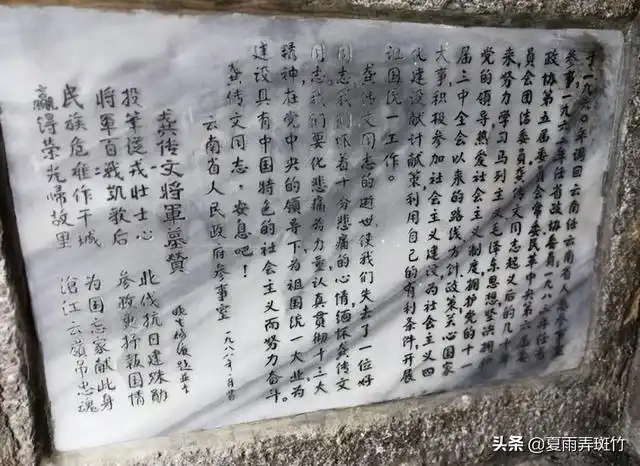 于一九六〇年调回云南任云南省人民
参事一九六二年任省政协委员,一九八三年任省
政协第五届委员会常委民革中央第六届委
员会团结委员,龚传文同志起义后的几十年
来努力学习马列主义毛泽东思想,坚决拥护
党的领导,热爱社会主义制度,拥护党的十一
届三中全会以来的路线方针政策关心国家
大事积极参加社会主义建设,为社会主义四
化建设献计献策利用自己的有利条件,开展
祖国统一工作。
龚传文同志的逝世,使我们失去了一位好
同志,我们怀着十分悲痛的心情,缅怀龚传文
同志,我们要化悲痛为力量,认真贯彻十三大
精神,在党中央的领导下,为祖国统一大业,为
建设具有中国特色的社会主义而努力奋斗。
龚传文同志,安息吧!
云南省人民政府参事室 一九八八年一月
龚传文將軍墓赞
投筆従戎壮士心 北伐抗日建殊勋
將軍百戰凯歌后 参政更持報国情
民族危难作干城 为国忘家献此身
赢得荣光歸故里 滄江云嶺吊忠魂
头条 @夏雨弄斑竹